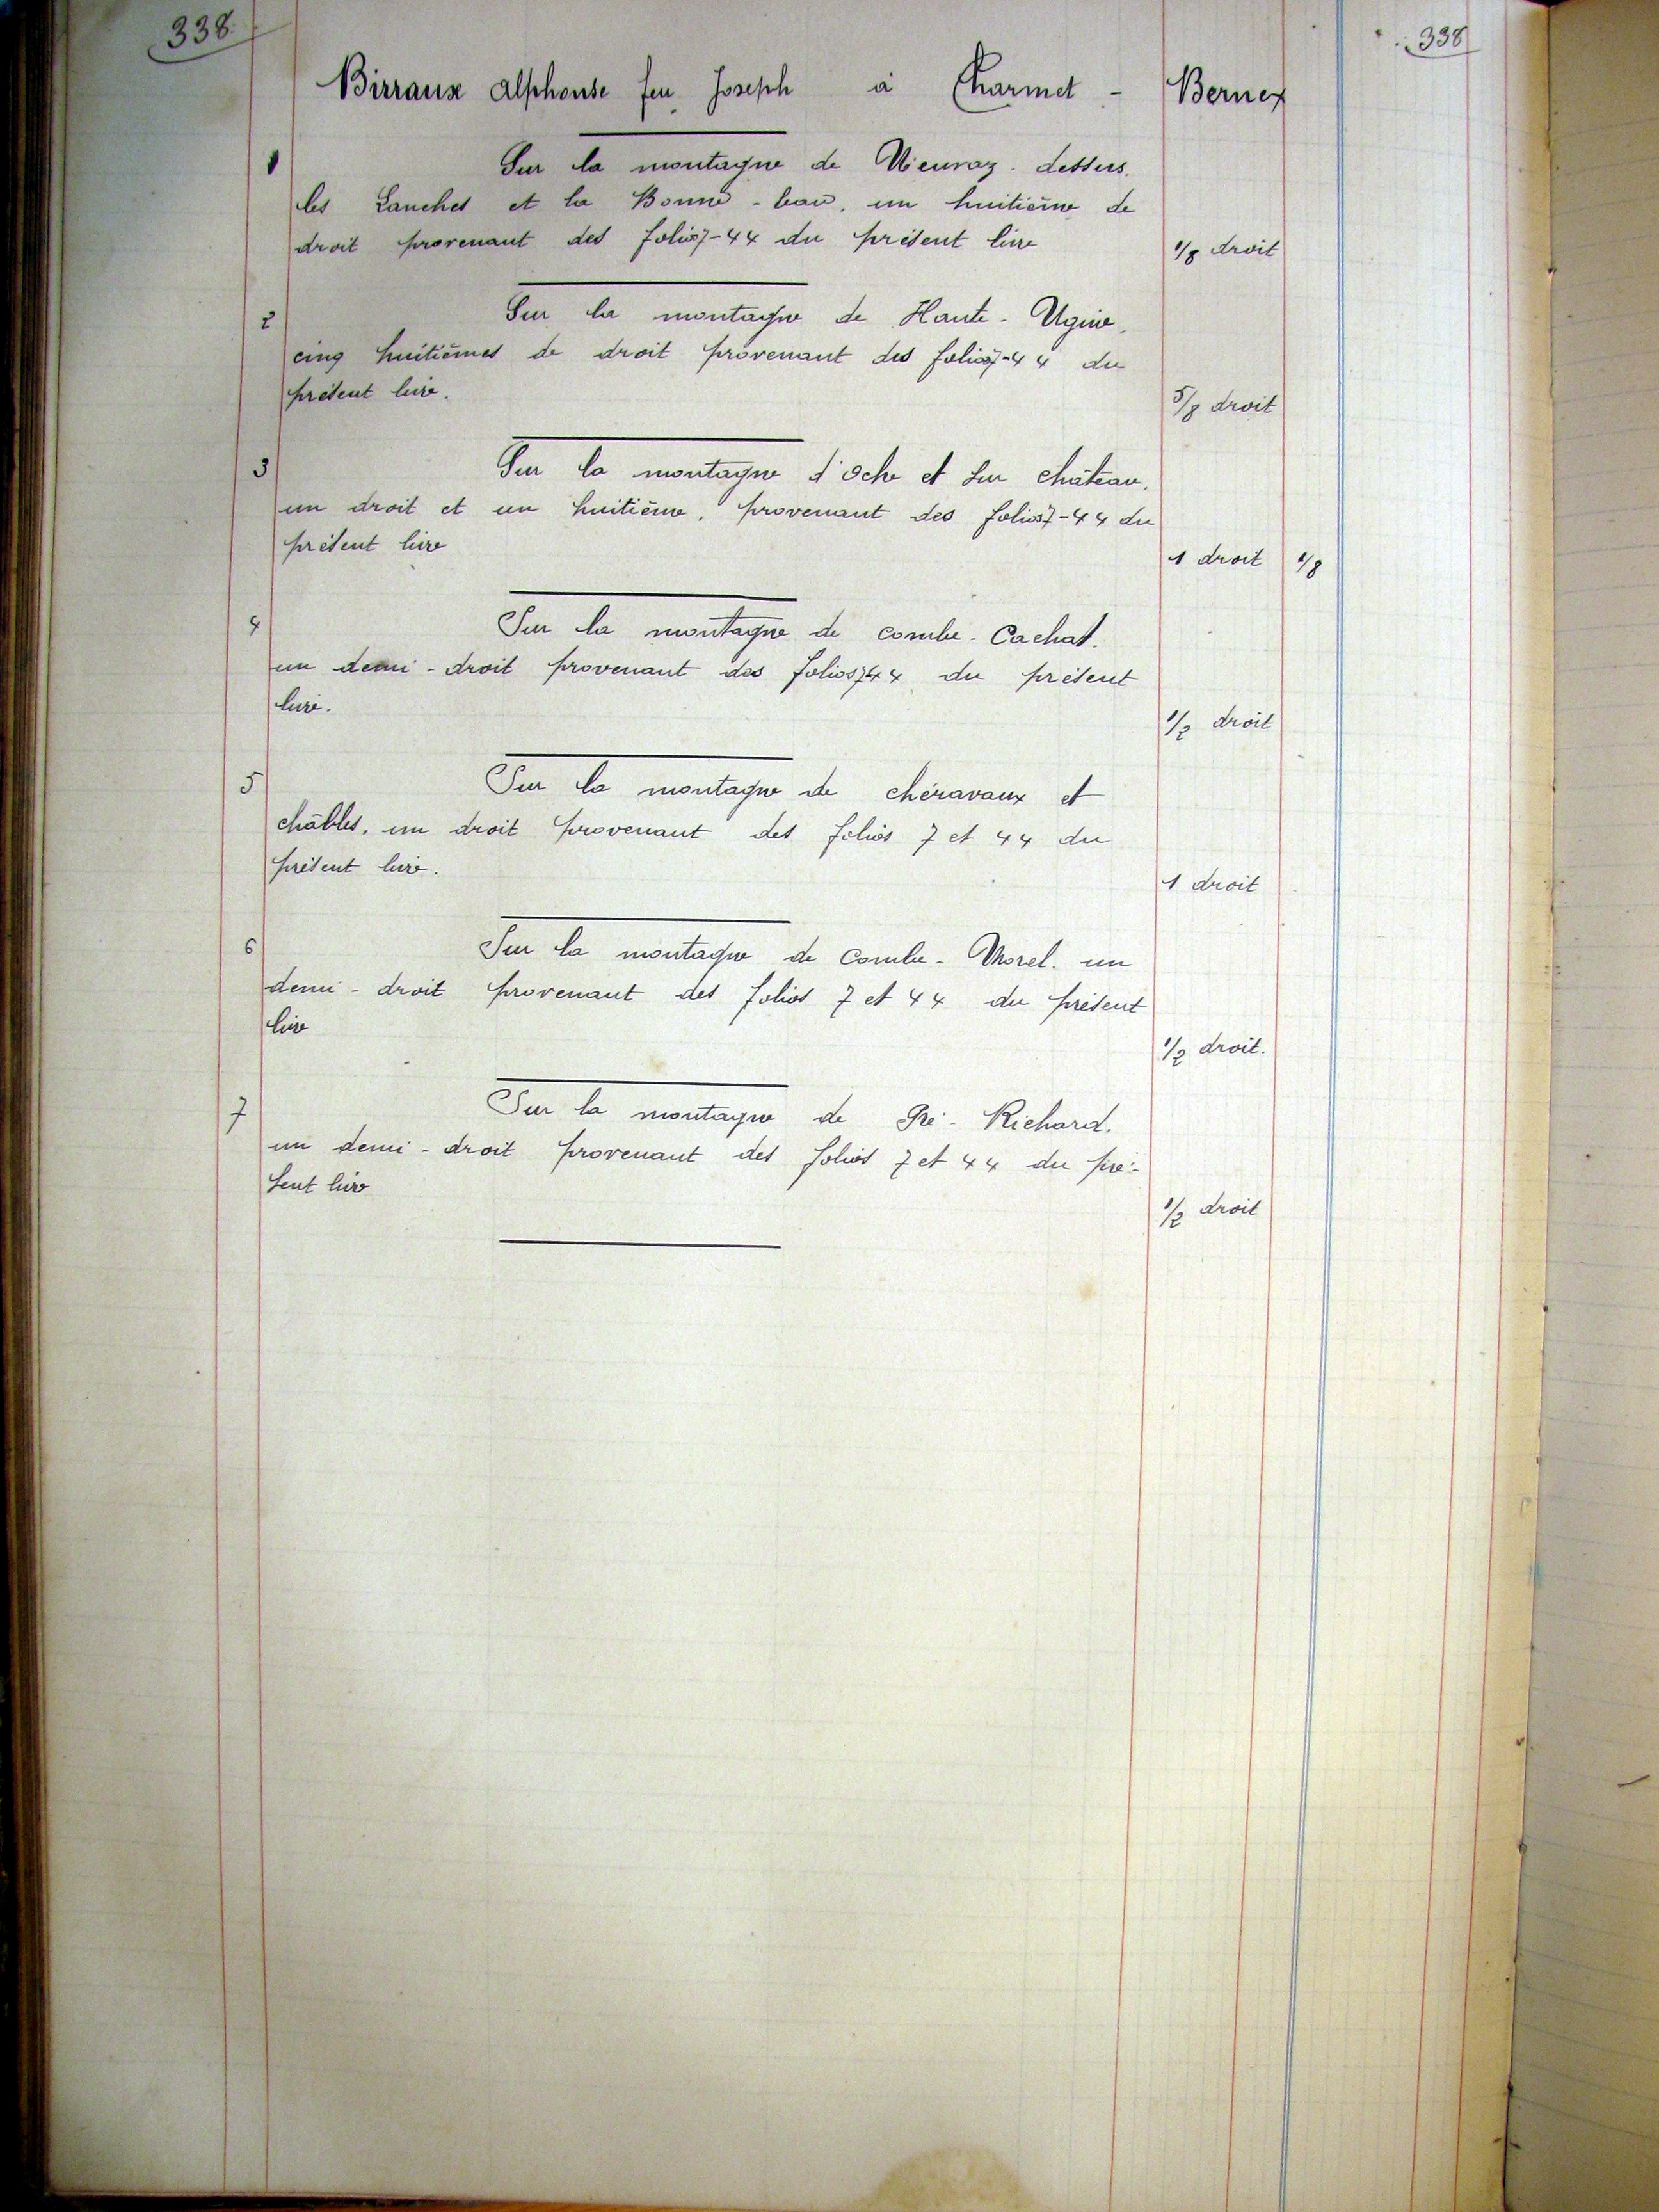 338 338
Birraux Alphonse feu Joseph à Charmet - Bernex
1 Sur la montagne de Nieuvaz-dessus.
les Lanches et la Bonne-eau, un huitième de
droit provenant des folios 7-44 du présent livre 1/8 droit
2 Sur la montagne de Haute-Ugine,
cinq huitièmes de droit provenant des folios 7-44 du
présent livre. 5/8 droit
3 Sur la montagne d'Oche et sur château,
un droit et un huitième, provenant des folios 7-44 du
présent livre 1 droit 1/8
4 Sur la montagne de combe-Cachat.
un demi-droit provenant des folios 7-44 du présent
livre. 1/2 droit
5 Sur la montagne de chéravaux et
châbles, un droit provenant des folios 7 et 44 du
présent livre. 1 droit
6 Sur la montagne de combe-Morel. un
demi-droit provenant des folios 7 et 44 du présent
livre 1/2 droit.
7 Sur la montagne de Pré-Richard.
un demi-droit provenant des folios 7 et 44 du pré-
sent livre 1/2 droit